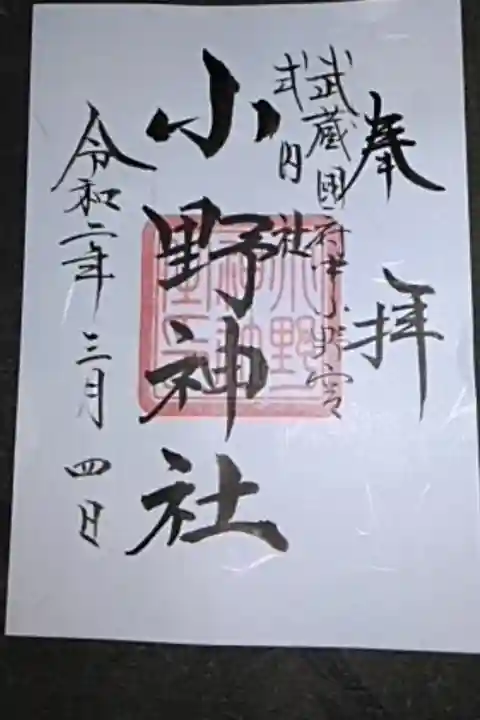 奉拝
武蔵国府中小野宮
式内社
小野神社
令和二年三月四日